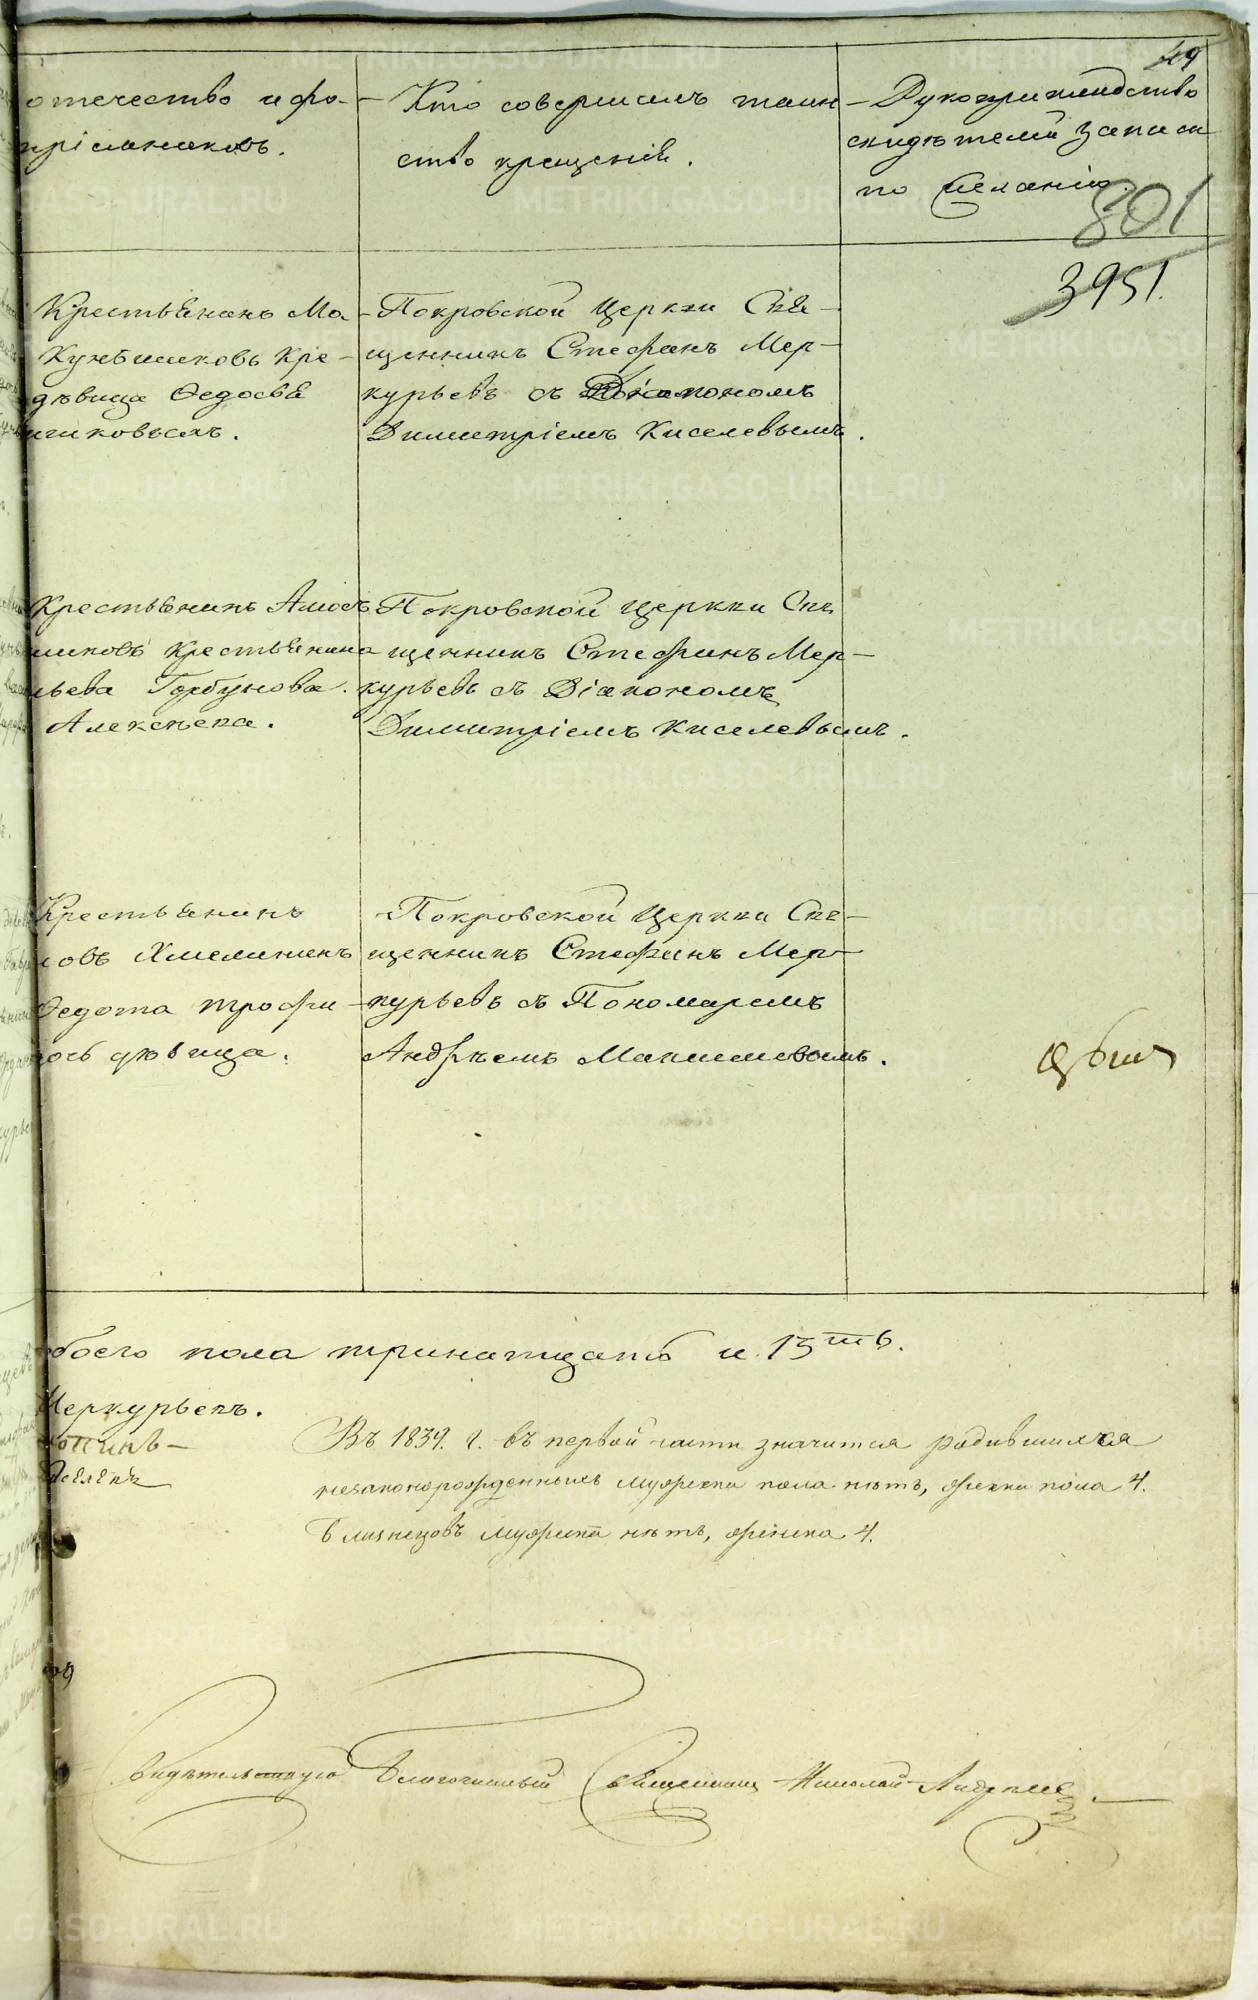 49
отечество и фа-
прiемниковъ.
Кто совершалъ таин
ство крещенiя.
Рукоприкладство
свидѣтелей записи
по желанiю.
801
3951.
Крестьянинъ Ма-
Кре-
дѣвица Ѳедосья
Покровской Церкви Свя-
щенникъ Стефанъ Мер-
курьевъ съ Дiакономъ
Димитрiемъ Киселевымъ.
Крестьянинъ Амосъ
крестьянина
Горбунова.
Алексѣева.
Покровской Церкви Свя
щенникъ Стефанъ Мер-
курьевъ съ Дiакономъ
Димитрiемъ Киселевымъ.
Крестьянинъ
овъ Хмелининъ
Ѳедота Трофи-
дѣвица.
Покровской Церкви Свя-
щенникъ Стефанъ Мер-
курьевъ съ Пономаремъ
Андрѣемъ
обоего пола тринатцать и 13ть.
Меркурьевъ.
Въ 1839. г. въ первой части значится родившихся
незаконорожденныхъ мужеска пола нѣтъ, женска пола 4.
Близнецовъ мужеска нѣтъ, женска 4.
Благочинный Священникъ Николай Андреев
METRIKI.GASO-URAL.RU